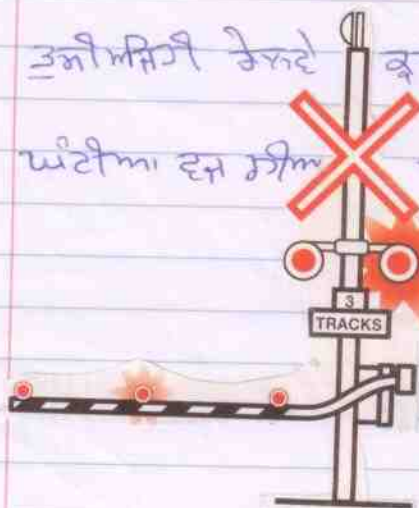 ਤੁਸੀ ਅਜਿਹੀ ਰੇਲਵੇ
ਘੰਟੀਆ ਵਜ ਰਹੀਆ
3
TRACKS